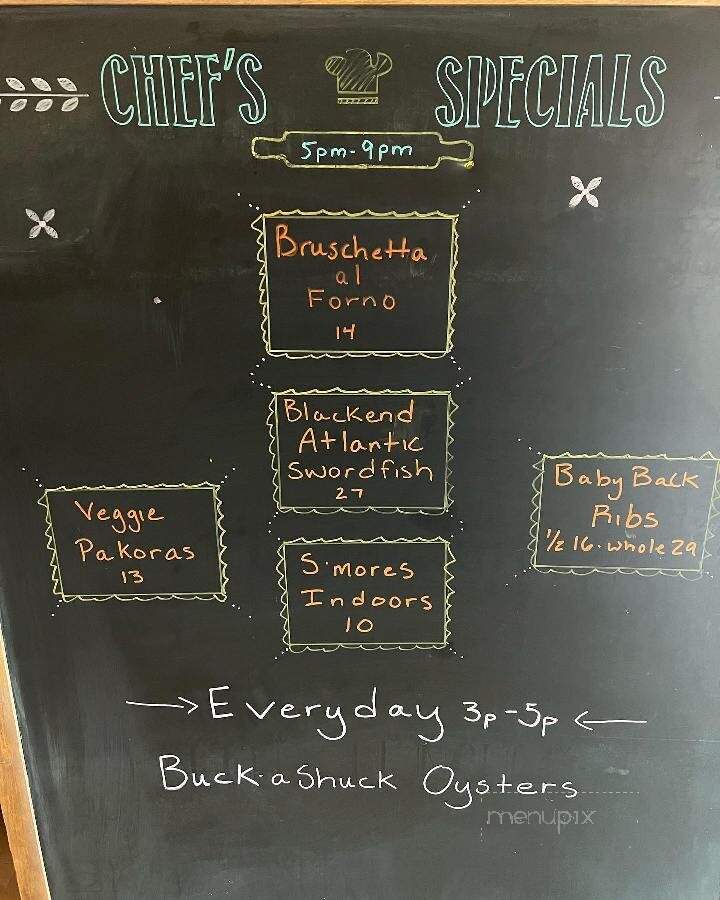 CHEF'S SPECIALS
5pm-9pm
Bruschetta
al
Forno
14
Blackend
Atlantic
Swordfish
27
Veggie
Pakoras
13
Baby Back
Ribs
1/2 16. whole 29
S'mores
Indoors
10
Everyday 3p-5p
Buck·a Shuck Oysters
menupix